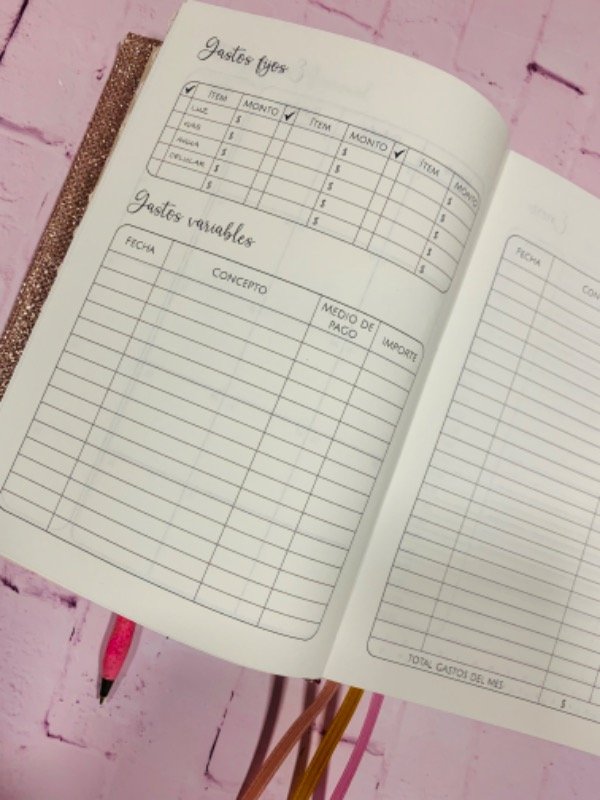 Gastos fijos
✓ ÍTEM MONTO ✓ ÍTEM MONTO ✓ ÍTEM MONTO
LUZ $ $ $
GAS $ $ $
AGUA $ $ $
CELULAR $ $ $
$ $ $
Gastos variables
FECHA CONCEPTO MEDIO DE PAGO IMPORTE
FECHA CON
TOTAL GASTOS DEL MES $